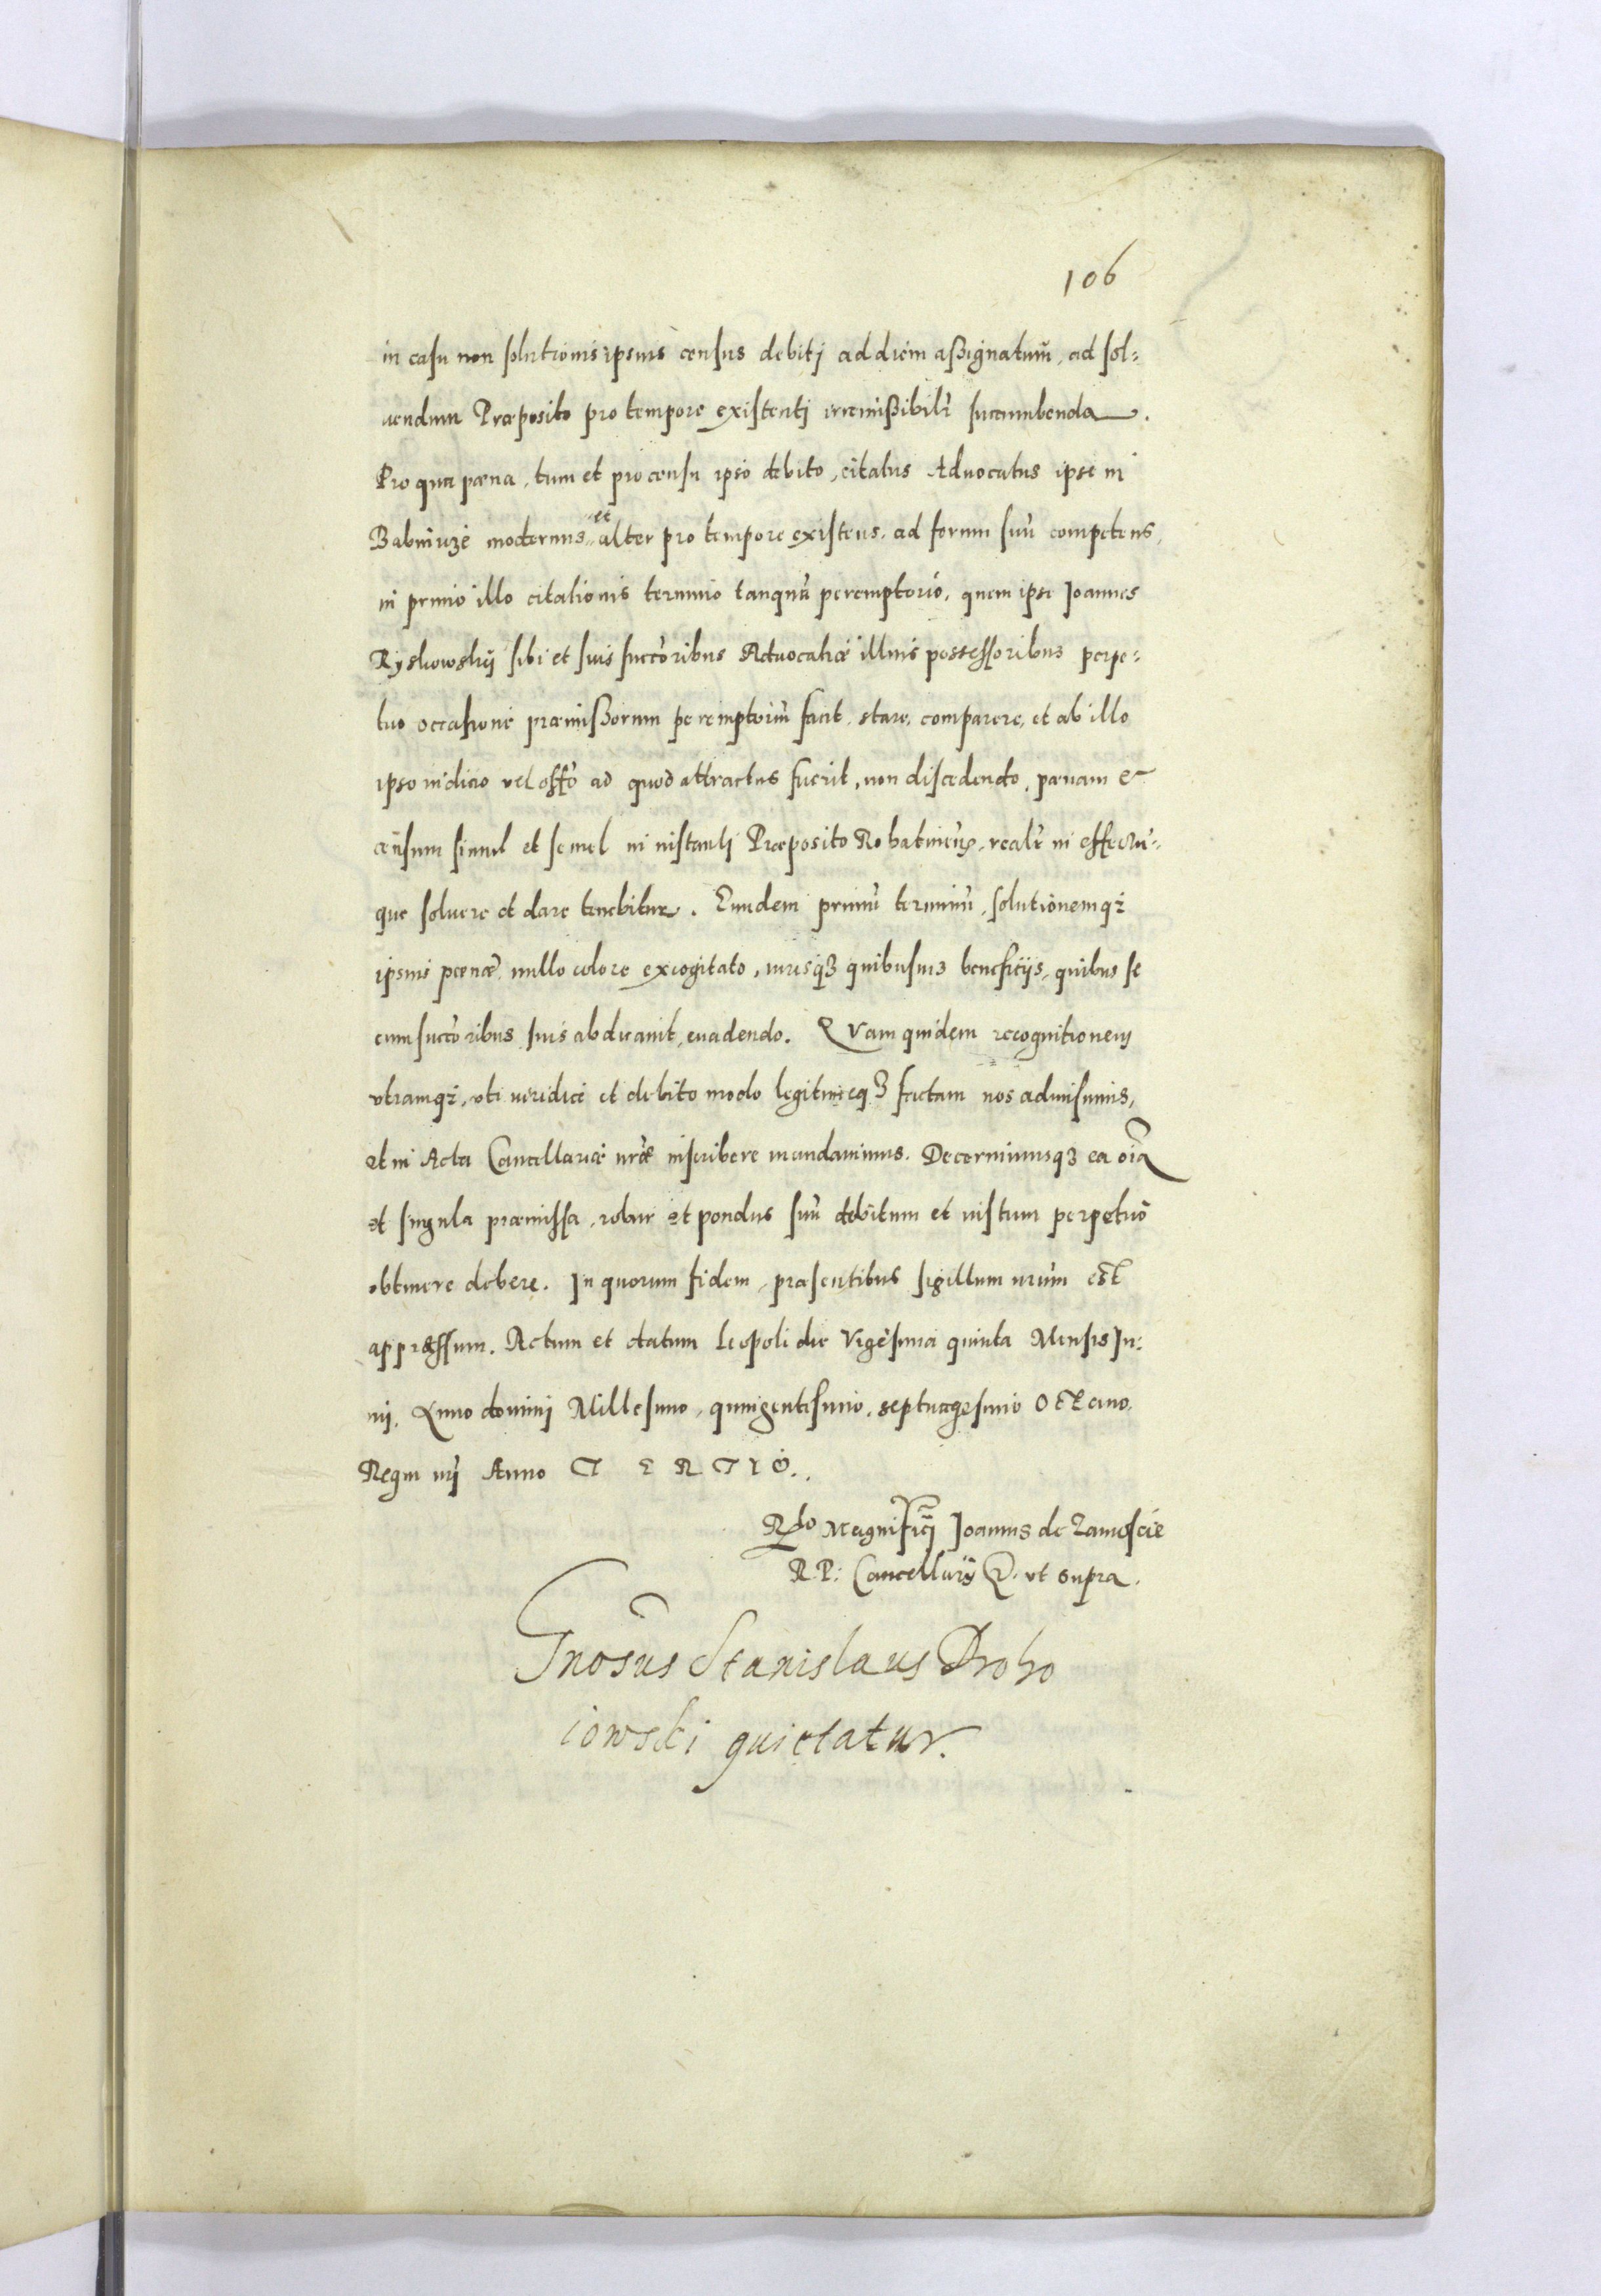 106
in casu non solutionis ipsius census debiti ad diem aßignatum̄, ad sol-
uendum Præposito pro tempore existenti irremißibilr̄ succumbenda.
Pro qua pœna, tum et pro censu ipso debito, citatus Aduocatus ipse in
Babincze modernus et alter pro tempore existens, ad forum suū competens,
in primo illo citationis termino tanquā peremptorio, quem ipse Joannes
Ryskowskij sibi et suis succ̄oribus Aduocatiæ illius possessoribus perpe-
tuo occasione præmißorum peremptoriū facit, stare, comparere, et ab illo
ipso iudicio vel off̄o ad quod attractus fuerit, non discedendo, pœnam et
censum simul et semel in instanti Præposito Rohatinen̄, realr̄ in effectu-
que soluere et dare tenebitur. Eundem primū terminū, solutionemqz
ipsius pœnæ, nullo colore excogitato, iurisqz quibusuis beneficijs, quibus se
cum succ̄oribus suis abdicauit, euadendo. Quam quidem recognitionem
vtramqz, vti veridicè et debito modo legitimeqz factam nos admisimus,
et in Acta Cancellariæ nr̄æ inscribere mandauimus. Decernimusqz ea oīa
et singula præmissa, robur et pondus suū debitum et iustum perpetuò
obtinere debere. In quorum fidem, præsentibus sigillum nr̄um est
appræssum. Actum et datum Leopoli die Vigesima quinta Mensis Ju-
nij. Anno domini Millesimo, quingentesimo, septuagesimo Octauo.
Regni nr̄i Anno TERTIO.
R̄lo Magnifici Joannis de Zamoscie
R. P. Cancellarij &. vt supra.
Gnōsus Stanislaus Droho
iowski quietatur.